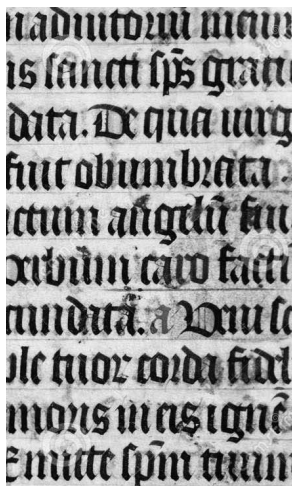 nadiutoriū meum
is sancti sp̄s grati
data. De qua uirg
fuit obumbrata
ctum angelū
uerbum caro facti
cundata. a Veni sc
ple tuor corda fidel
moris in eis ignē
Emitte sp̄m tuum